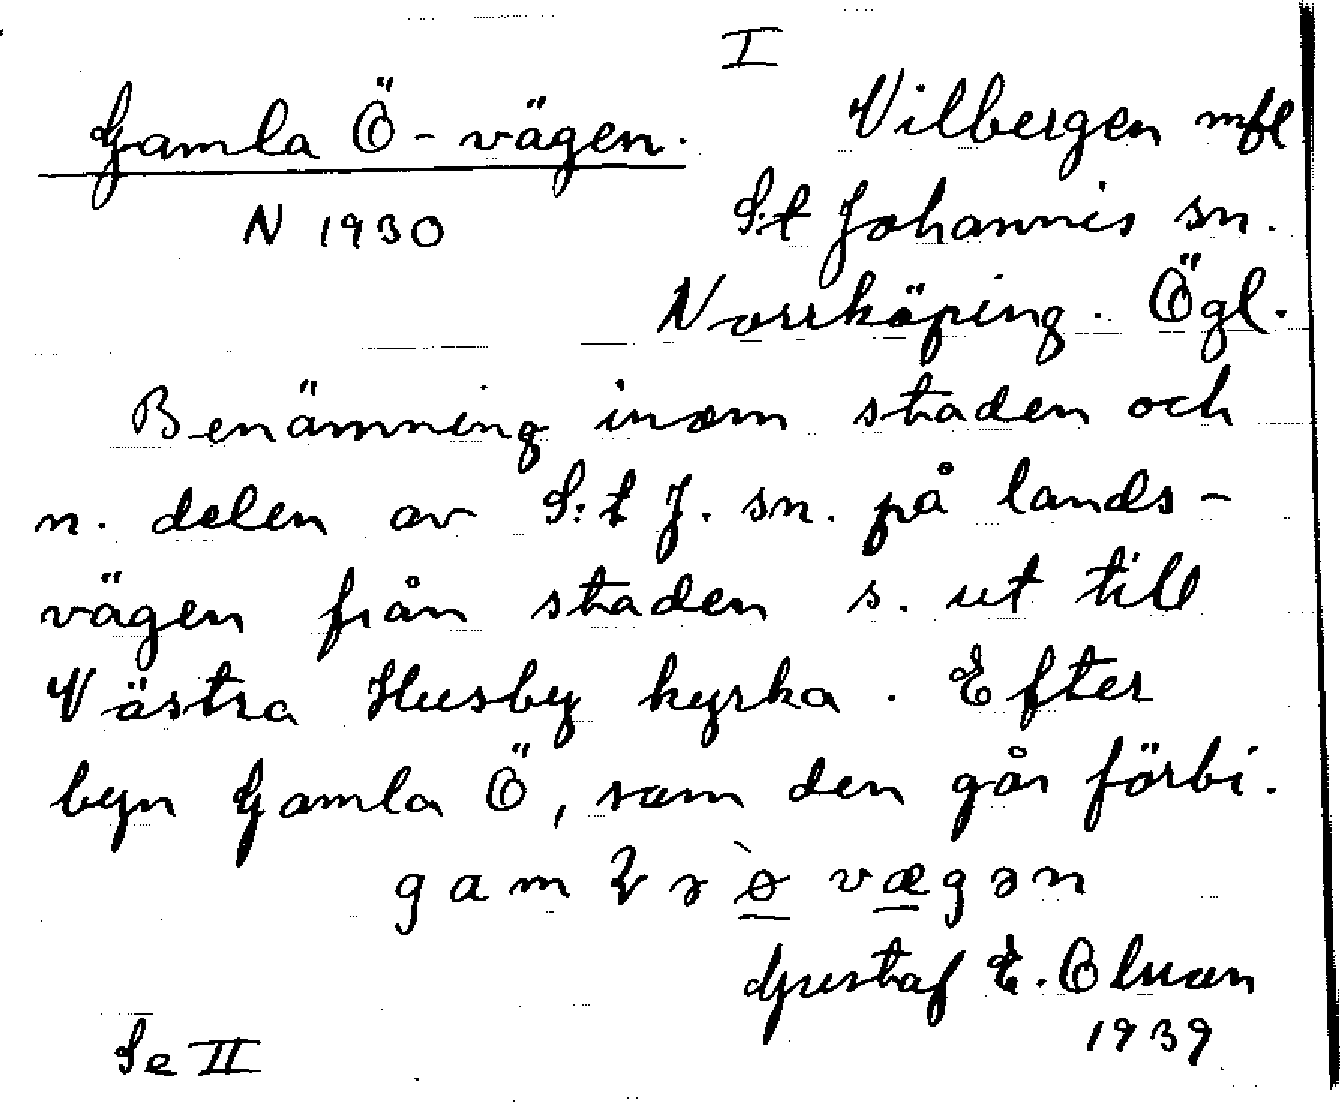 I
Gamla Ö-vägen.
N 1930
Vilbergen mfl
S:t Johannis sn.
Norrköping. Ögl.
Benämning inom staden och
n. delen av S:t J. sn. på lands-
vägen från staden s. ut till
Västra Husby kyrka. Efter
byn Gamla Ö, som den går förbi.
vægən
Gustaf E.
1939
Se II